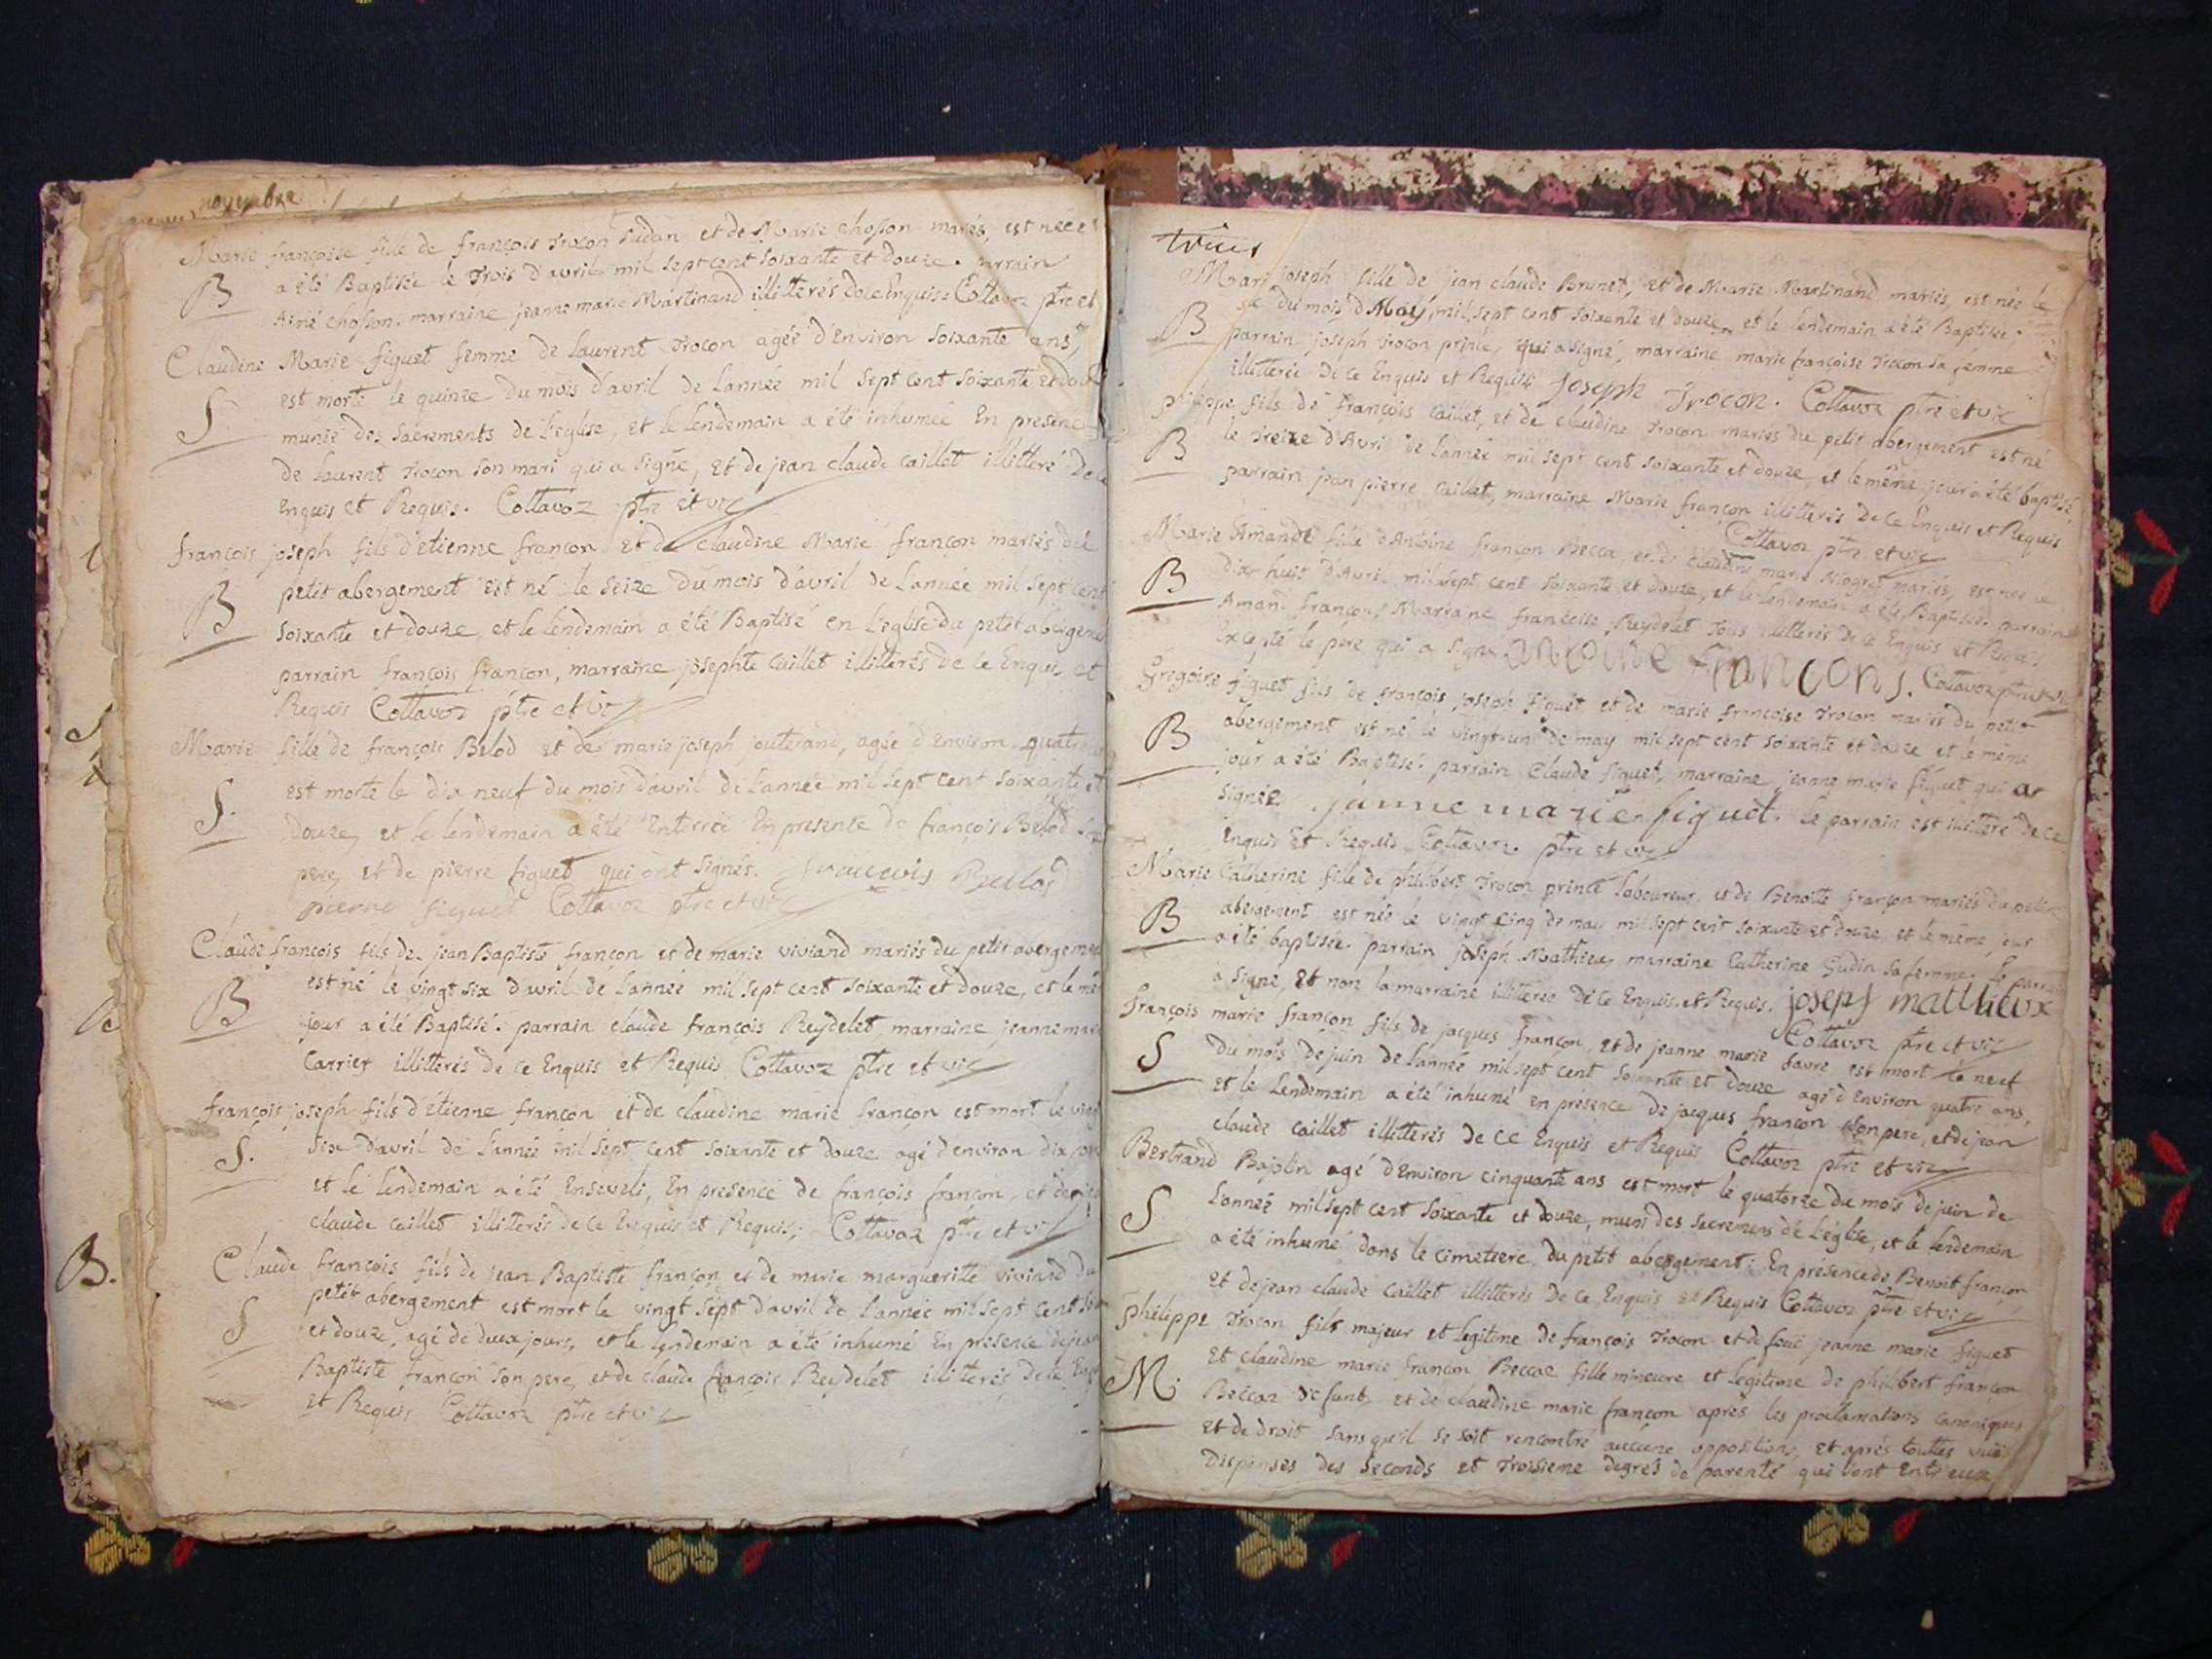 novembre
Marie françoise fille de françois Trocon Sudan et de Marie Chosson mariés, est née et
B
a été Baptisée le Trois d'avril mil sept cent soixante et douze. parrain
Aimé chosson. marraine jeanne marie Martinand illitterés de ce Enquis. Cottavoz ptre et
Claudine Marie figuet femme de Laurent Trocon agée d'Environ soixante ans,
est morte le quinze du mois d'avril de l'année mil sept cent soixante et douze
S
munie des Sacrements de l'eglise, et le lendemain a été inhumée En presence
de laurent Trocon son mari qui a signé, Et de jean claude Caillet illitteré De ce
Enquis et Requis. Cottavoz ptre et vic
françois joseph fils d'etienne françon et de Claudine Marie françon mariés du
petit abergement est né le seize du mois d'avril de l'année mil sept cent
B
soixante et douze, et le lendemain a été Baptisé en l'eglise du petit abergement
parrain françois françon, marraine josephte Caillet illitterés de ce Enquis et
Requis Cottavoz ptre et vic
Marie fille de françois Belod et de marie joseph jouterand, agée d'Environ quatre
est morte le dix neuf du mois d'avril de l'année mil sept cent soixante et
S.
Douze, et le lendemain a été Enterrée En presence de françois Belod son
pere, et de pierre figuet qui ont signés. francois Bellod
pierre figuet Cottavoz ptre et vic
Claude françois fils de jean Baptiste françon et de marie viviand mariés du petit abergement
est né le vingt six d'avril de l'année mil sept cent soixante et douze, et le mê
B
jour a été Baptisé. parrain claude françois Reydelet, marraine jeanne marie
Carrier illitterés de ce Enquis et Requis Cottavoz ptre et vic
françois joseph fils d'etienne françon et de claudine marie françon est mort le vingt
six d'avril de l'année mil sept cent soixante et douze agé d'environ dix jours
S.
et le lendemain a été Enseveli, En presence de françois françon, et de jean
claude Caillet illitterés de ce Enquis et Requis; Cottavoz ptre et vic
B.
Claude françois fils de jean Baptiste françon et de marie margueritte viviand du
petit abergement est mort le vingt sept d'avril de l'année mil sept cent soix
S
et douze, agé de deux jours, et le lendemain a été inhumé En presence de jean
Baptiste françon son pere, et de claude françois Reydelet illitterés de ce Enq
et Requis Cottavoz ptre et vic
trois
Marie joseph fille de jean claude Brunet, et de Marie Martinand mariés, est née le
du mois d May, mil sept cent soixante et douze, et le lendemain a été Baptisée.
B
parrain joseph Trocon prince, qui a signé, marraine marie françoise Trocon sa femme
illitterée De ce Enquis et Requis Joseph Trocon. Cottavoz ptre et vic
philippe fils de françois Caillet, et de claudine Trocon mariés du petit abergement est né
B
le Treize d'Avril de l'année mil sept cent soixante et douze, et le même jour a été baptisé,
parrain jean pierre Caillet, marraine Marie françon illitterés De ce Enquis et Requis
Cottavoz ptre et vic
Marie Amande fille d'Antoine françon Becca et de claudine marie Niogret mariés, est née le
B
dix huit d'Avril mil sept cent soixante et douze, et le lendemain a été Baptisée. parrain
Amand françon, Marraine françoise Reydelet Tous illitterés de ce Enquis et Requis
Excepté le pere qui a signé. antoine françons. Cottavoz ptre et vic
Gregoire figuet fils de françois joseph figuet et de marie françoise Trocon mariés du petit
B
abergement est né le vingt un de may mil sept cent soixante et douze et le même
jour a été Baptisé. parrain Claude figuet, marraine jeanne marie figuet qui a
signée. janne marie figuet. Le parrain est illitteré de ce
Enquis Et Requis Cottavoz ptre et vic
Marie Catherine fille de philibert Trocon prince laboureur, et de Benoitte françon mariés du petit
B
abergement est née le vingt cinq de may mil sept cent soixante et douze, et le même jour
a été baptisée. parrain joseph Mathieu, marraine Catherine Gudin sa femme. Le parrain
a signé, Et non la marraine illiterée de ce Enquis et Requis. joseph matthieux
Cottavoz ptre et vic
françois marie françon fils de jacques françon, et de jeanne marie favre est mort le neuf
S
du mois de juin de l'année mil sept cent soixante et douze agé d'Environ quatre ans,
et le Lendemain a été inhumé en presence de jacques françon son pere, et de jean
claude Caillet illitterés de ce Enquis et Requis Cottavoz ptre et vic
Bertrand Bajolin agé d'Environ cinquante ans est mort le quatorze du mois de juin de
S
l'année mil sept cent soixante et douze, muni des sacremens de l'église, et le lendemain
a été inhumé dans le cimetiere du petit abergement: En presence de Benoit françon
et de jean claude Caillet illitterés De ce Enquis et Requis Cottavoz ptre et vic
philippe Trocon fils majeur et legitime de françois Trocon et de feüe jeanne marie figuet
Et claudine marie françon Beccaz fille mineure et legitime de philibert françon
M.
Beccaz defunt, et de claudine marie françon après les proclamations canoniques
Et de droit sans qu'il se soit rencontré aucune opposition, Et après touttes
Dispenses des seconds et Troisieme degrés de parenté qui sont Entr'eux